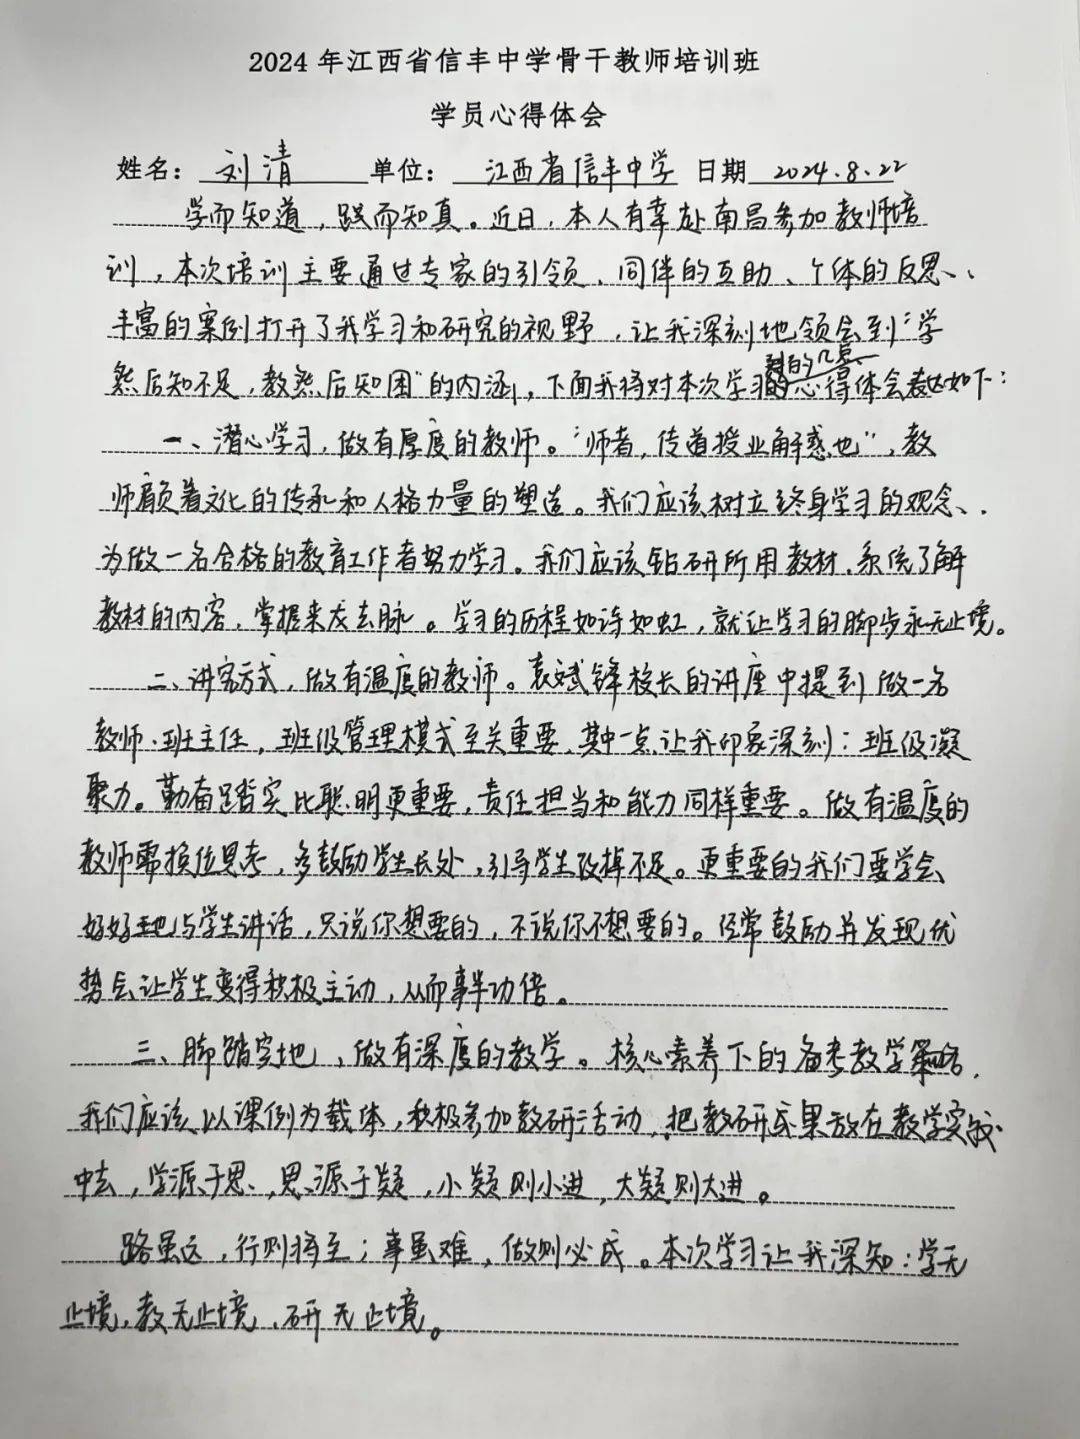 2024 年江西省信丰中学骨干教师培训班
学员心得体会
姓名：刘清 单位：江西省信丰中学 日期 2024.8.22
学而知道，践而知真。近日，本人有幸赴南昌参加教师培
训，本次培训主要通过专家的引领、同伴的互助、个体的反思、
丰富的案例打开了我学习和研究的视野，让我深刻地领会到“学
然后知不足，教然后知困”的内涵，下面我将对本次学习到的几点心得体会表达如下：
一、潜心学习，做有厚度的教师。“师者，传道授业解惑也”，教
师肩负着文化的传承和人格力量的塑造。我们应该树立终身学习的观念，
为做一名合格的教育工作者努力学习。我们应该钻研所用教材，系统了解
教材的内容，掌握来龙去脉。学习的历程如诗如虹，就让学习的脚步永无止境。
二、讲究方式，做有温度的教师。袁斌锋校长的讲座中提到做一名
教师、班主任，班级管理模式至关重要，其中一点让我印象深刻：班级凝
聚力。勤奋踏实比聪明更重要，责任担当和能力同样重要。做有温度的
教师需换位思考，多鼓励学生长处，引导学生改掉不足。更重要的我们要学会
好好地与学生讲话，只说你想要的，不说你不想要的。经常鼓励并发现优
势会让学生变得积极主动，从而事半功倍。
三、脚踏实地，做有深度的教学。核心素养下的备考教学策略，
我们应该以课例为载体，积极参加教研活动，把教研成果放在教学实践
中去，学源于思，思源于疑，小疑则小进，大疑则大进。
路虽远，行则将至；事虽难，做则必成。本次学习让我深知：学无
止境，教无止境，研无止境。